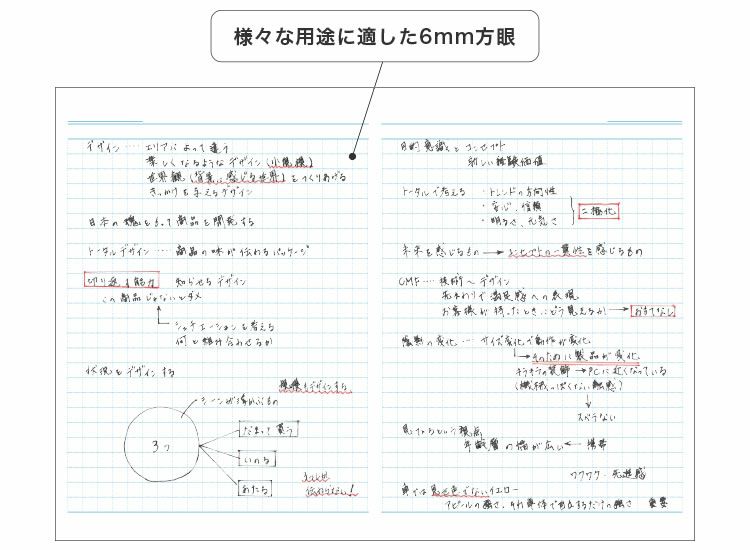 様々な用途に適した6mm方眼
デザイン … エリアによって違う
楽しくなるようなデザイン
世界観（背景に感じる世界）をつくりあげる
きっかけを与えるデザイン
日本の魂をもって商品を開発する
トータルデザイン … 商品の味が伝わるパッケージ
切り返す能力 知らせるデザイン
この商品じゃないとダメ
シチュエーションを考える
何と組み合わせるか
状況をデザインする
環境もデザインする
シーンが浮かぶもの
3つ
だまって買う
いのち
かたち
伝わらない！
目的意識とコンセプト
新しい体験価値
トータルで考える ・トレンドの方向性
・安心、信頼
・明るさ、元気さ
二極化
未来を感じるもの → コンセプトの一貫性を感じるもの
CMF … 技術へデザイン
先まわりで満足感への表現
お客様が持ったときにどう見えるか → おもてなし
役割の変化 … サイズ変化で動作が変化
そのために製品が変化
キラキラの装飾 → PCに近くなっている
（機械っぽくない触感）
スベラない
見てもらという視点
年齢層の幅が広い ← 携帯
ワクワク・先進感
車では見る色でないイエロー
重要